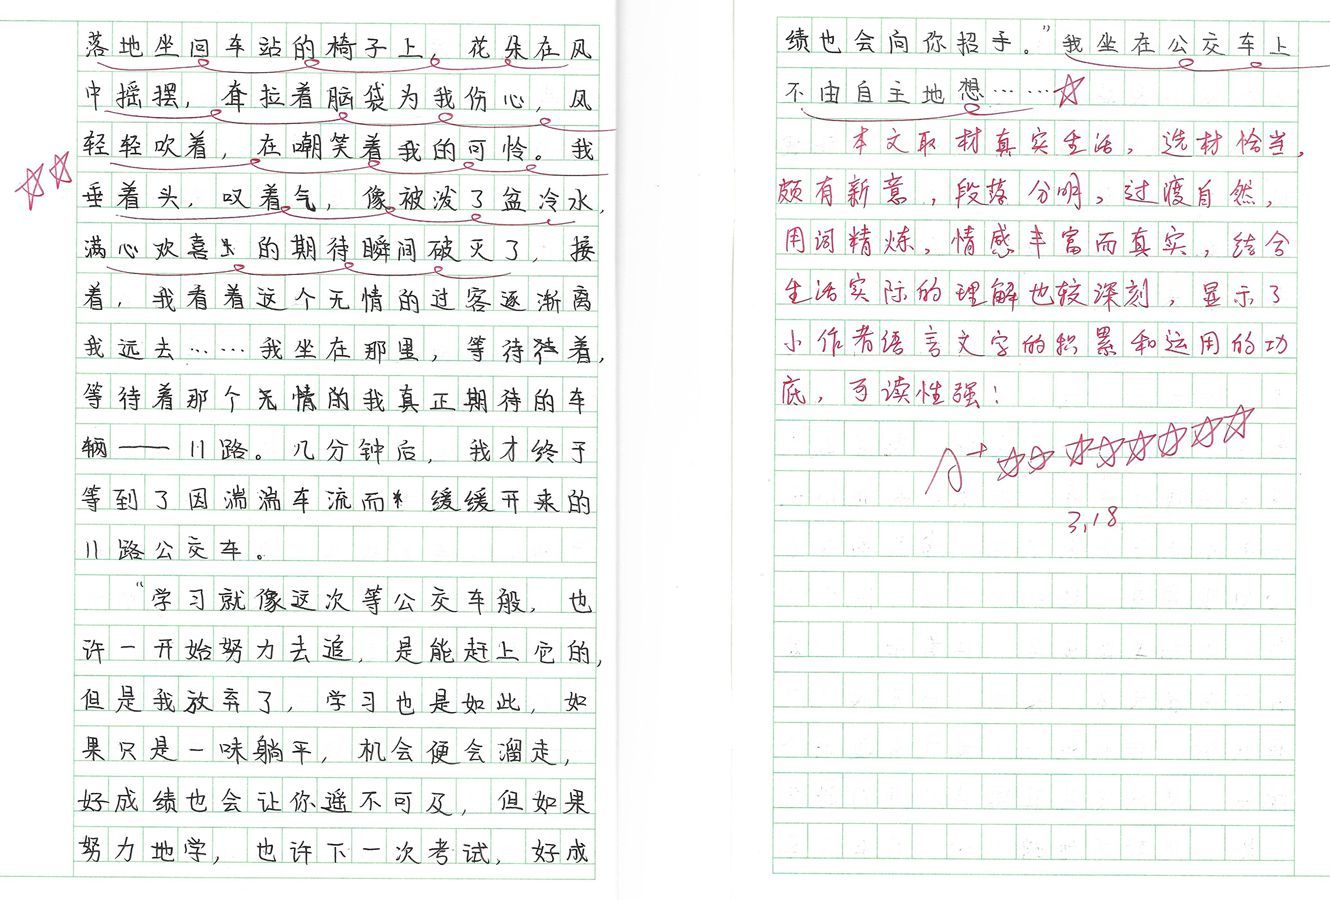 落地坐回车站的椅子上，花朵在风
中摇摆，耷拉着脑袋为我伤心，风
轻轻吹着，在嘲笑着我的可怜。我
垂着头，叹着气，像被泼了盆冷水，
满心欢喜的期待瞬间破灭了，接
着，我看着这个无情的过客逐渐离
我远去……我坐在那里，等待着，
等待着那个无情的我真正期待的车
辆——11路。几分钟后，我才终于
等到了因湍湍车流而缓缓开来的
11路公交车。
“学习就像这次等公交车般，也
许一开始努力去追，是能赶上它的，
但是我放弃了，学习也是如此，如
果只是一味躺平，机会便会溜走，
好成绩也会让你遥不可及，但如果
努力地学，也许下一次考试，好成
绩也会向你招手。”我坐在公交车上
不由自主地想……
本文取材真实生活，选材恰当，
颇有新意，段落分明，过渡自然，
用词精炼，情感丰富而真实，结合
生活实际的理解也较深刻，显示了
小作者语言文字的积累和运用的功
底，可读性强！
A+
3.18